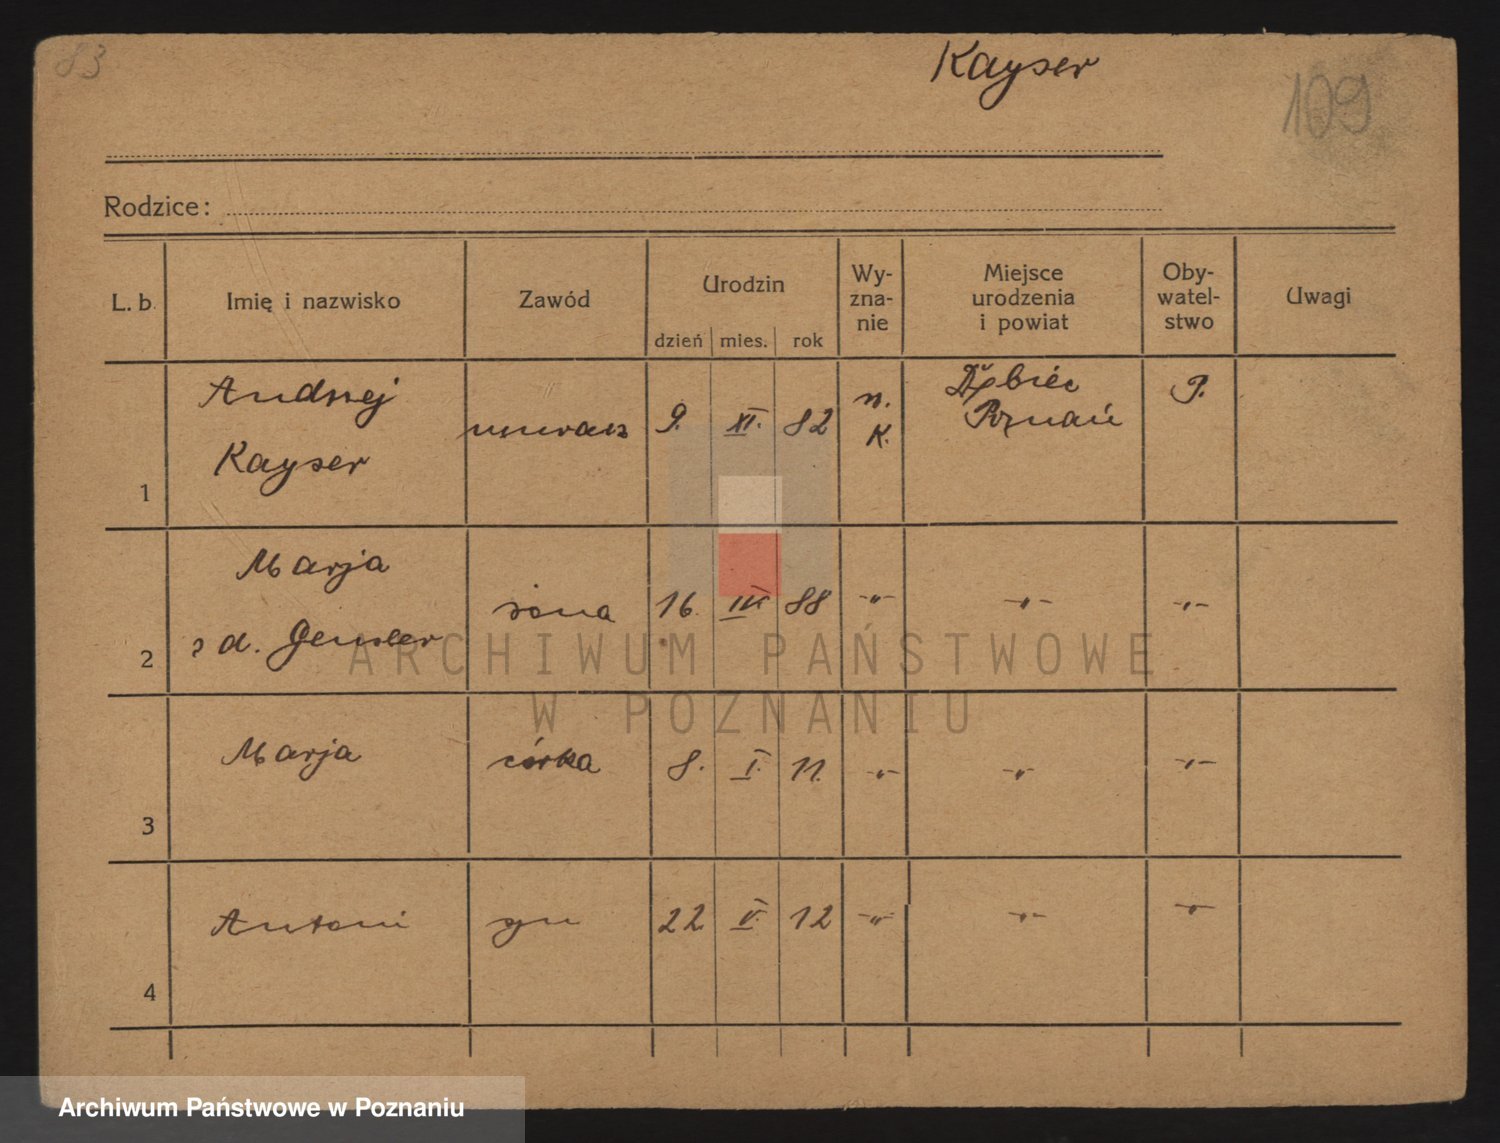 83
Kayser
109
Rodzice:
L. b. Imię i nazwisko Zawód Urodzin dzień mies. rok Wy-zna-nie Miejsce urodzenia i powiat Oby-watel-stwo Uwagi
Andrzej
Kayser
1 murarz 9. XI. 82 r. K. Dębiec
Poznań P.
Marja
z d. Gensler
2 żona 16. III 88 -"- -"- -"-
3 Marja córka 8. I. 11. -"- -"- -"-
4 Antoni syn 22. V. 12 -"- -"- -"-
ARCHIWUM PAŃSTWOWE
W POZNANIU
Archiwum Państwowe w Poznaniu